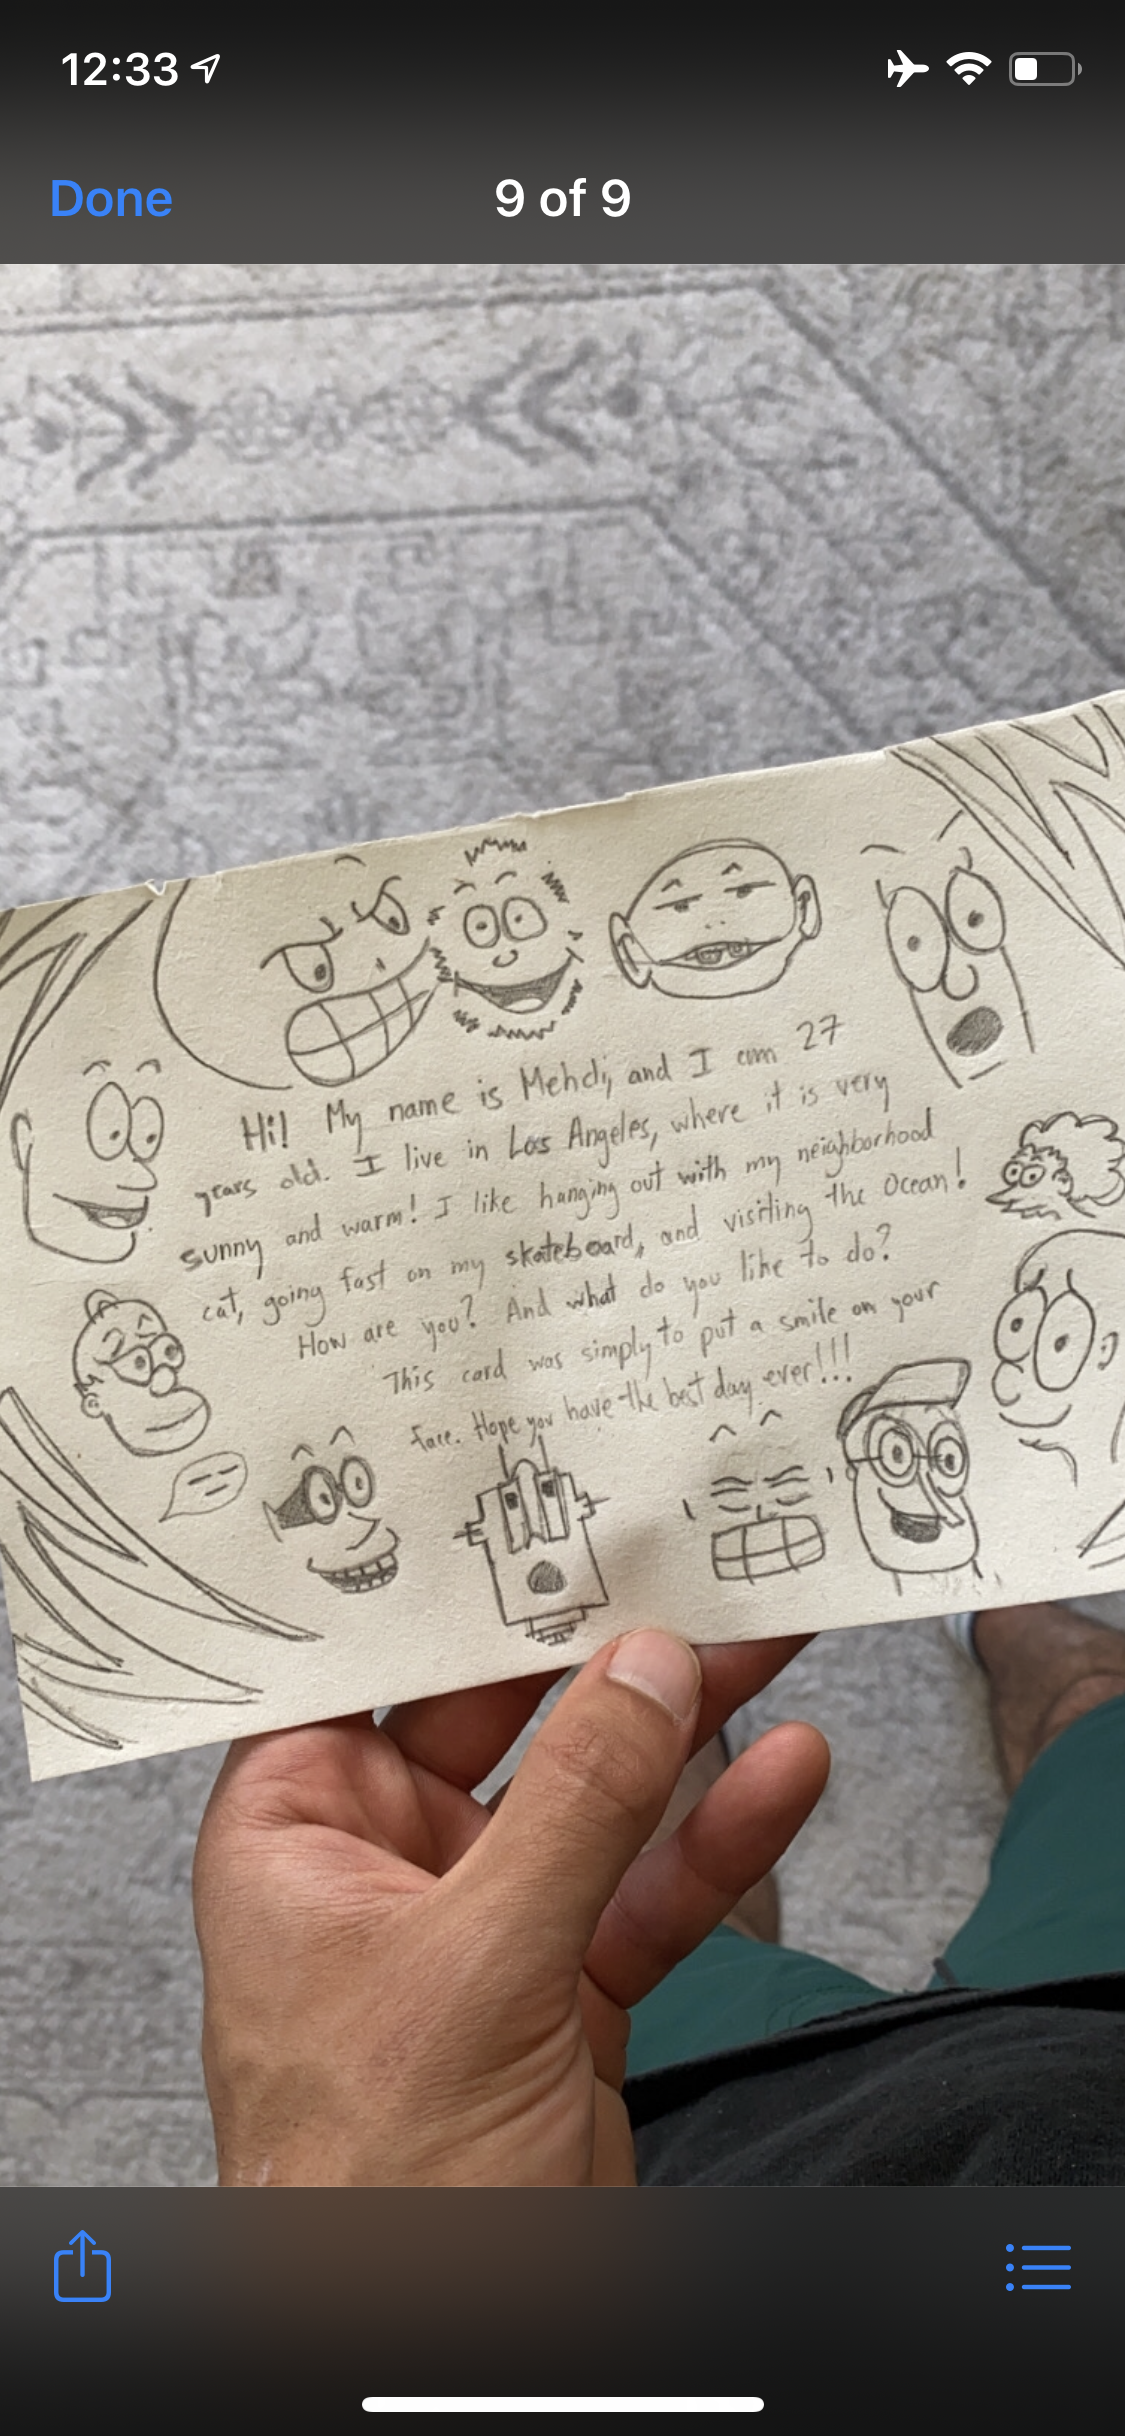 12:33
Done
9 of 9
Hi! My name is Mehdi, and I am 27
years old. I live in Los Angeles, where it is very
sunny and warm! I like hanging out with my neighborhood
cat, going fast on my skateboard, and visiting the Ocean!
How are you? And what do you like to do?
This card was simply to put a smile on your
face. Hope you have the best day ever!!!